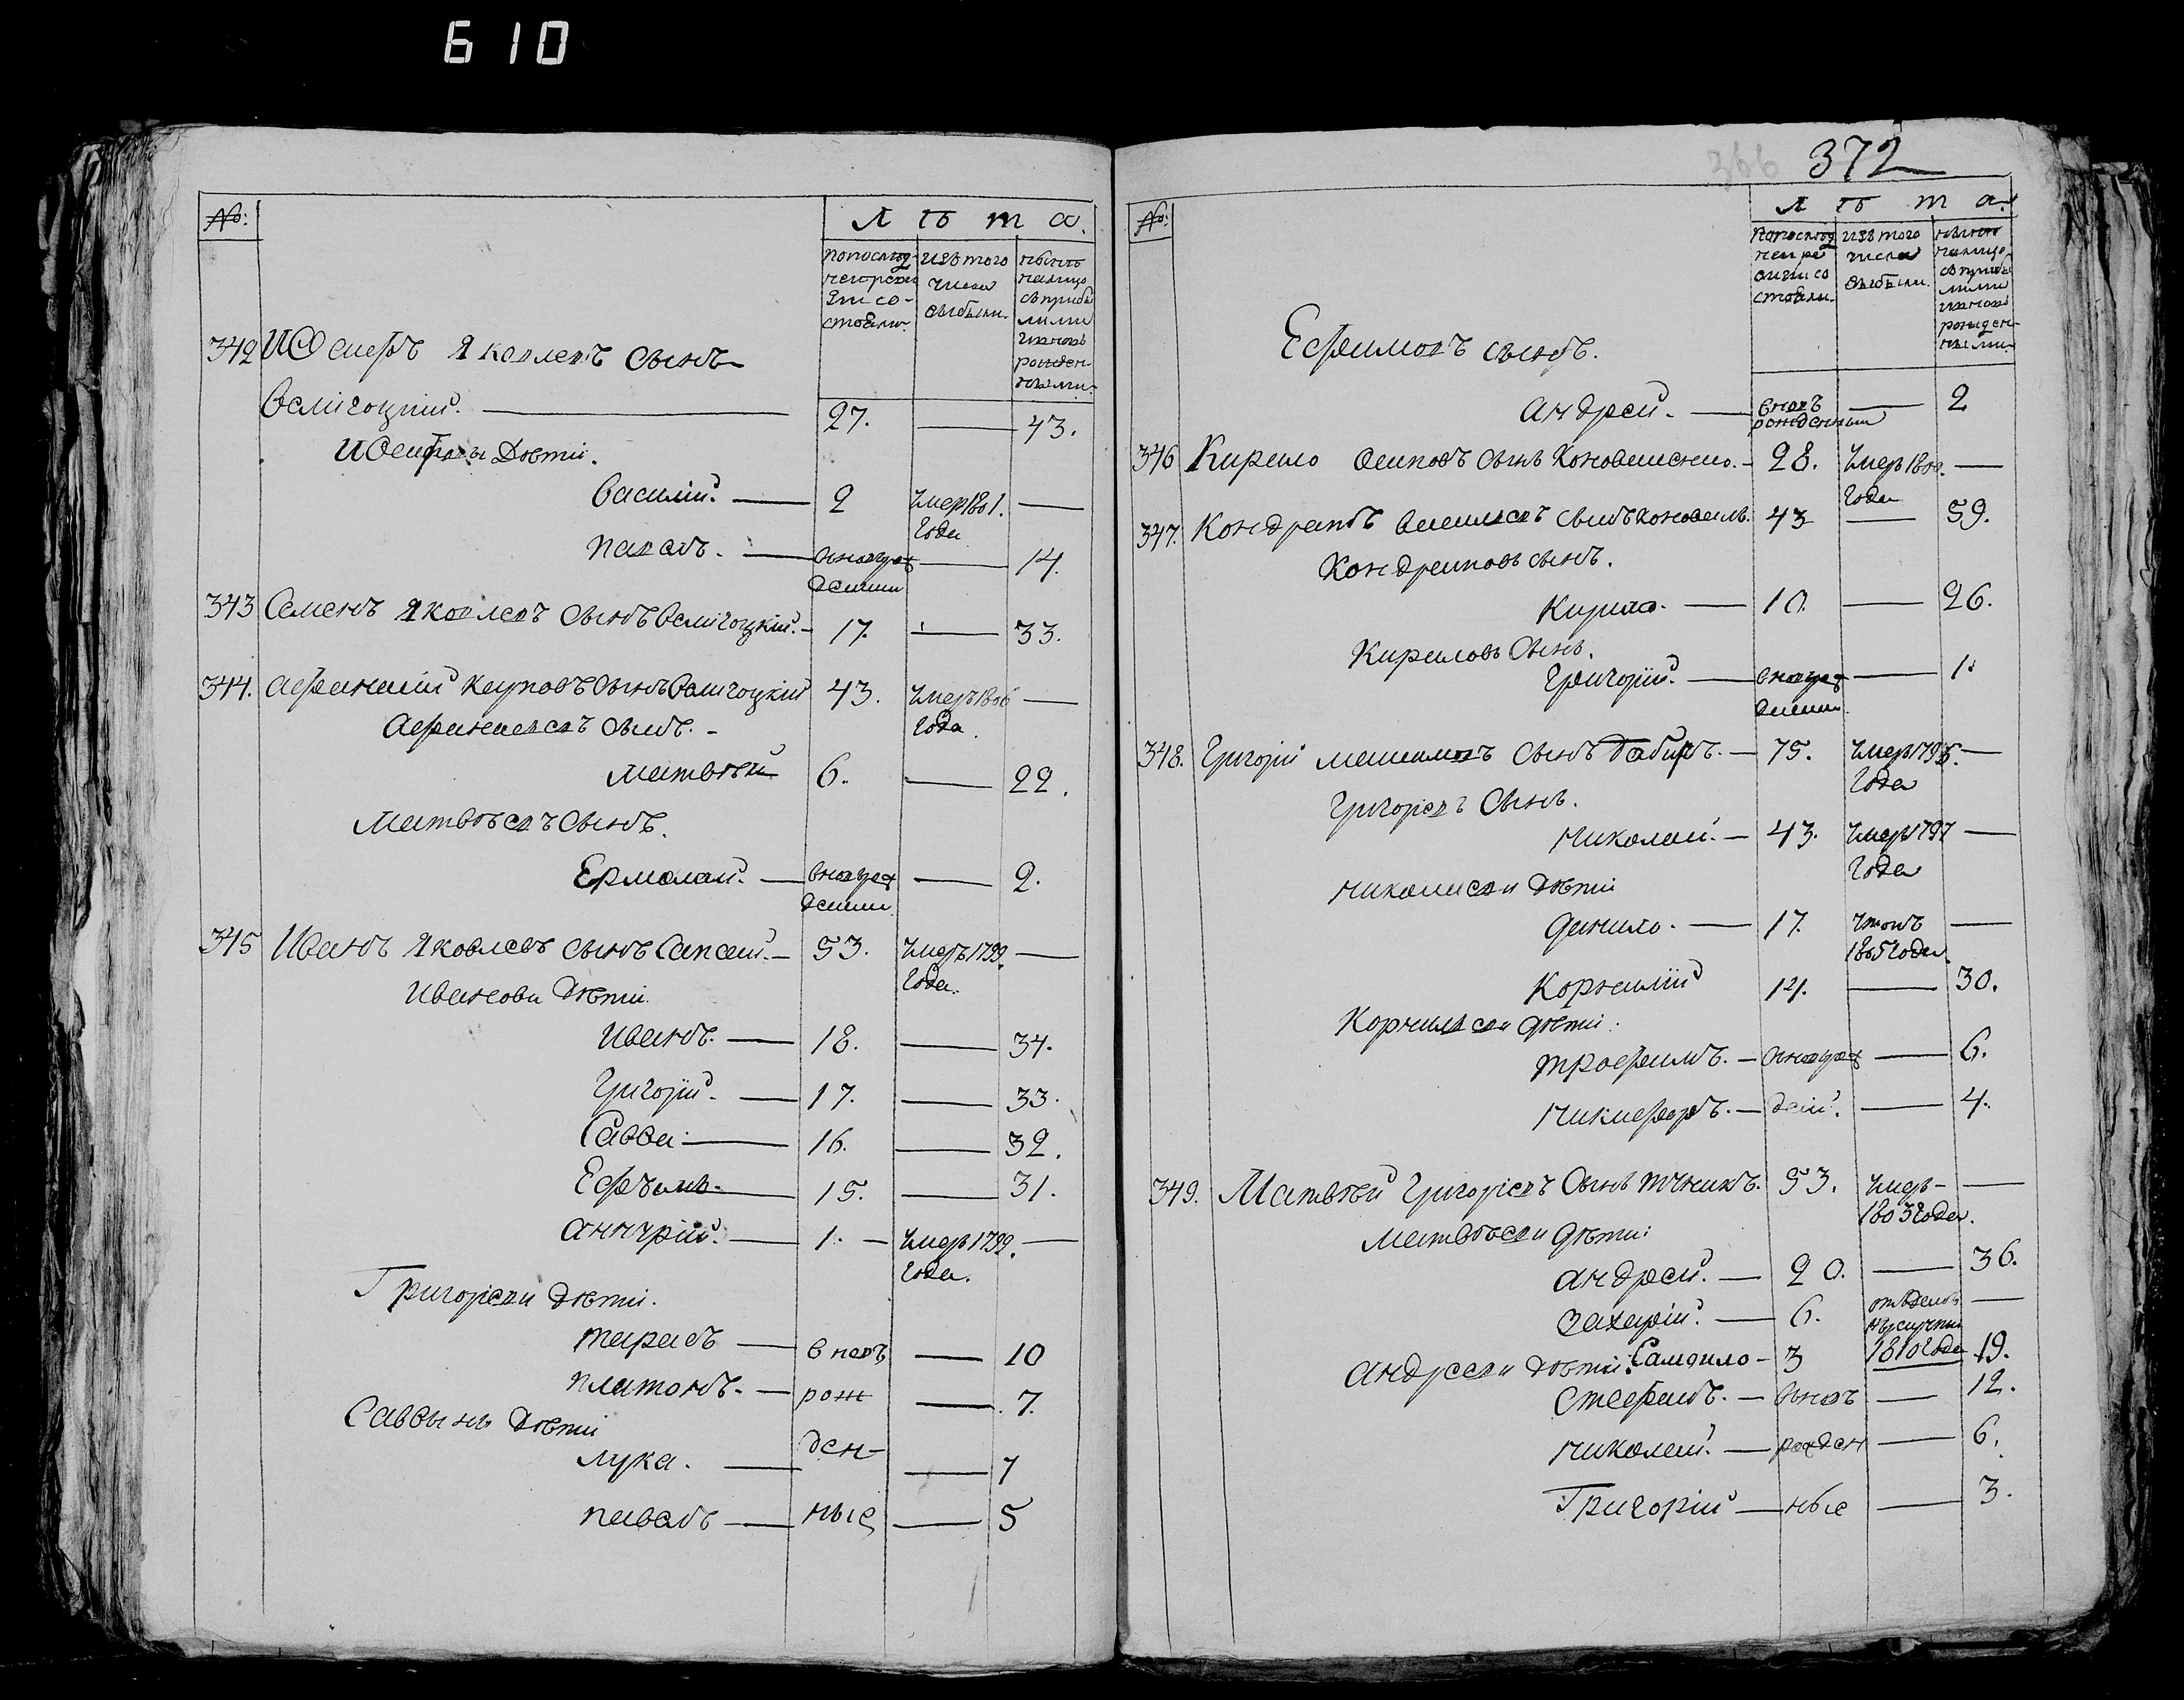 610
№:
Л ѣ т а.
По послѣд-
ней реви
зіи со-
стояло.
Изъ того
числа
выбыло.
Нынѣ
на лицо
съ прибы
лыми
и вновь
рожден-
ными.
342 Иосифъ Яковлевъ сынъ
Велигоцкий. 27. 43.
Иосифовы дѣти.
Василий. 2 умер 1801.
года
Павелъ. вновь рож 14.
денный
343 Семенъ Яковлевъ сынъ Велигоцкій. 17. 33.
344. Афанасий Карповъ сынъ Велигоцкий 43. умеръ 1806
Афанасьевъ сынъ. года
Матвѣй 6. 22.
Матвѣевъ сынъ.
Ермолай. вновь рож 2.
денный
345 Иванъ Яковлевъ сынъ Сапсай. 53. умеръ 1799.
Ивановы дѣти. года.
Иванъ. 18. 34.
Григорій. 17. 33.
Савва. 16. 32.
Ефимъ. 15. 31.
1. умеръ 1799.
года.
Григорьевы дѣти.
Тарасъ вновь 10
Платонъ. рож 7.
Саввины дѣти
Лука. ден- 7
Павелъ ные 5
366 372
№:
Л ѣ т а.
По послѣд
ней ре
визіи со
стояло.
Изъ того
числа
выбыло.
Нынѣ
на лицо
съ прибы
лыми
и вновь
рожден-
ными.
Ефимовъ сынъ.
Андрей. вновь 2
рожденный
346 Кирило Осиповъ сынъ 28. умеръ 1800.
года
347. Кондратъ Васильевъ сынъ 43 59.
Кондратовъ сынъ.
Кирило. 10. 26.
Кириловъ сынъ.
Григорій. вновь рож 1.
денный.
348. Григорій сынъ 75. умер 1795.
Григорьевъ сынъ. года
Николай. 43. умеръ 1797
Николаевы дѣти года
Данило. 17. 
1805 года.
Корнилій 14. 30.
Корнильевы дѣти.
Трофимъ. вновь рож 6.
Никифоръ. ден. 4.
349. Матвѣй Григорьевъ сынъ 53. умеръ
Матвѣевы дѣти: 1803 года.
Андрей. 20. 36.
Захарій. 6. отданъ
въ рекруты
Андреевы дѣти. Самойло 3 1810 года 19.
Стефанъ. вновь 12.
Николай. рожден 6.
Григорій ные 3.